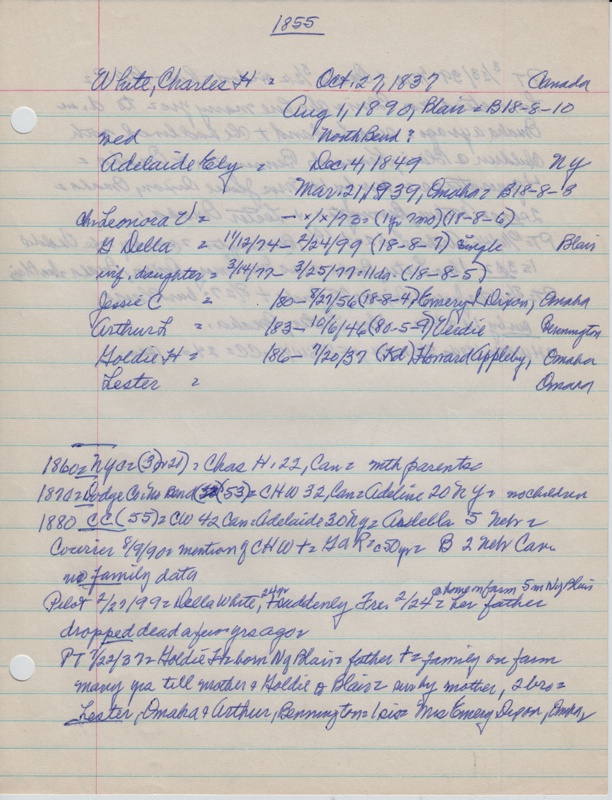 1855
White, Charles H = Oct. 27, 1837 Canada
Aug 1, 1890, Blair = B18-8-10
wed North Bend?
Adelaide Ely = Dec. 4, 1849 NY
Mar. 21, 1939, Omaha = B18-8-B
ch: Leonora V = - x/x/73 = (1yr 7mo) (18-8-6)
G Della = 11/12/74 - 2/24/99 (18-8-7) single Blair
inf. daughter = 3/14/77 - 3/25/77 = 11ds. (18-8-5)
Jessie C = /80 - 8/27/56 (18-8-4) Emery L Dixon, Omaha
Arthur L = /83 - 10/6/46 (80-5-9) Verdie Bennington
Goldie H = /86 - 7/20/37 (Kd) Howard Appleby, Omaha
Lester = Omaha
1860 = NYC = = Chas H. 22, Can = with parents
1870 = Dodge Co. No Bend (53) = CHW 32, Can = Adeline 20 NY = no children
1880 CC (55) = CW 42 Can = Adelaide 30 NY = Ardella 5 Nebr =
Courier 8/9/90 = mention of CHW + = GAR = c50yr = B 2 Nebr Cav.
no family data
Pilot 2/27/99 = Della White, 24yr, + suddenly Fri. 2/24 = @ home on farm 5m NW Blair = her father
dropped dead a few yrs ago =
PT 7/22/37 = Goldie H = born NW Blair = father + = family on farm
many yrs till mother & Goldie @ Blair = surv by mother, 2 bro =
Lester, Omaha & Arthur, Bennington = 1 sis = Mrs Emery Dixon, Omaha